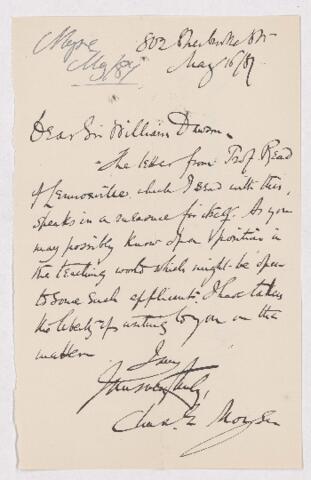 Moyse
May 1887
802 Sherbrooke St.
May 16/87
Dear Sir William Dawson,
The letter from Prof. Read
of Lennoxville, which I send with this,
speaks in a measure for itself. As you
may possibly know of an position in
the teaching world which might be open
to some such applicant, I have taken
the liberty of writing to you on the
matter.
I am
Yours very truly,
Chas. E. Moyse